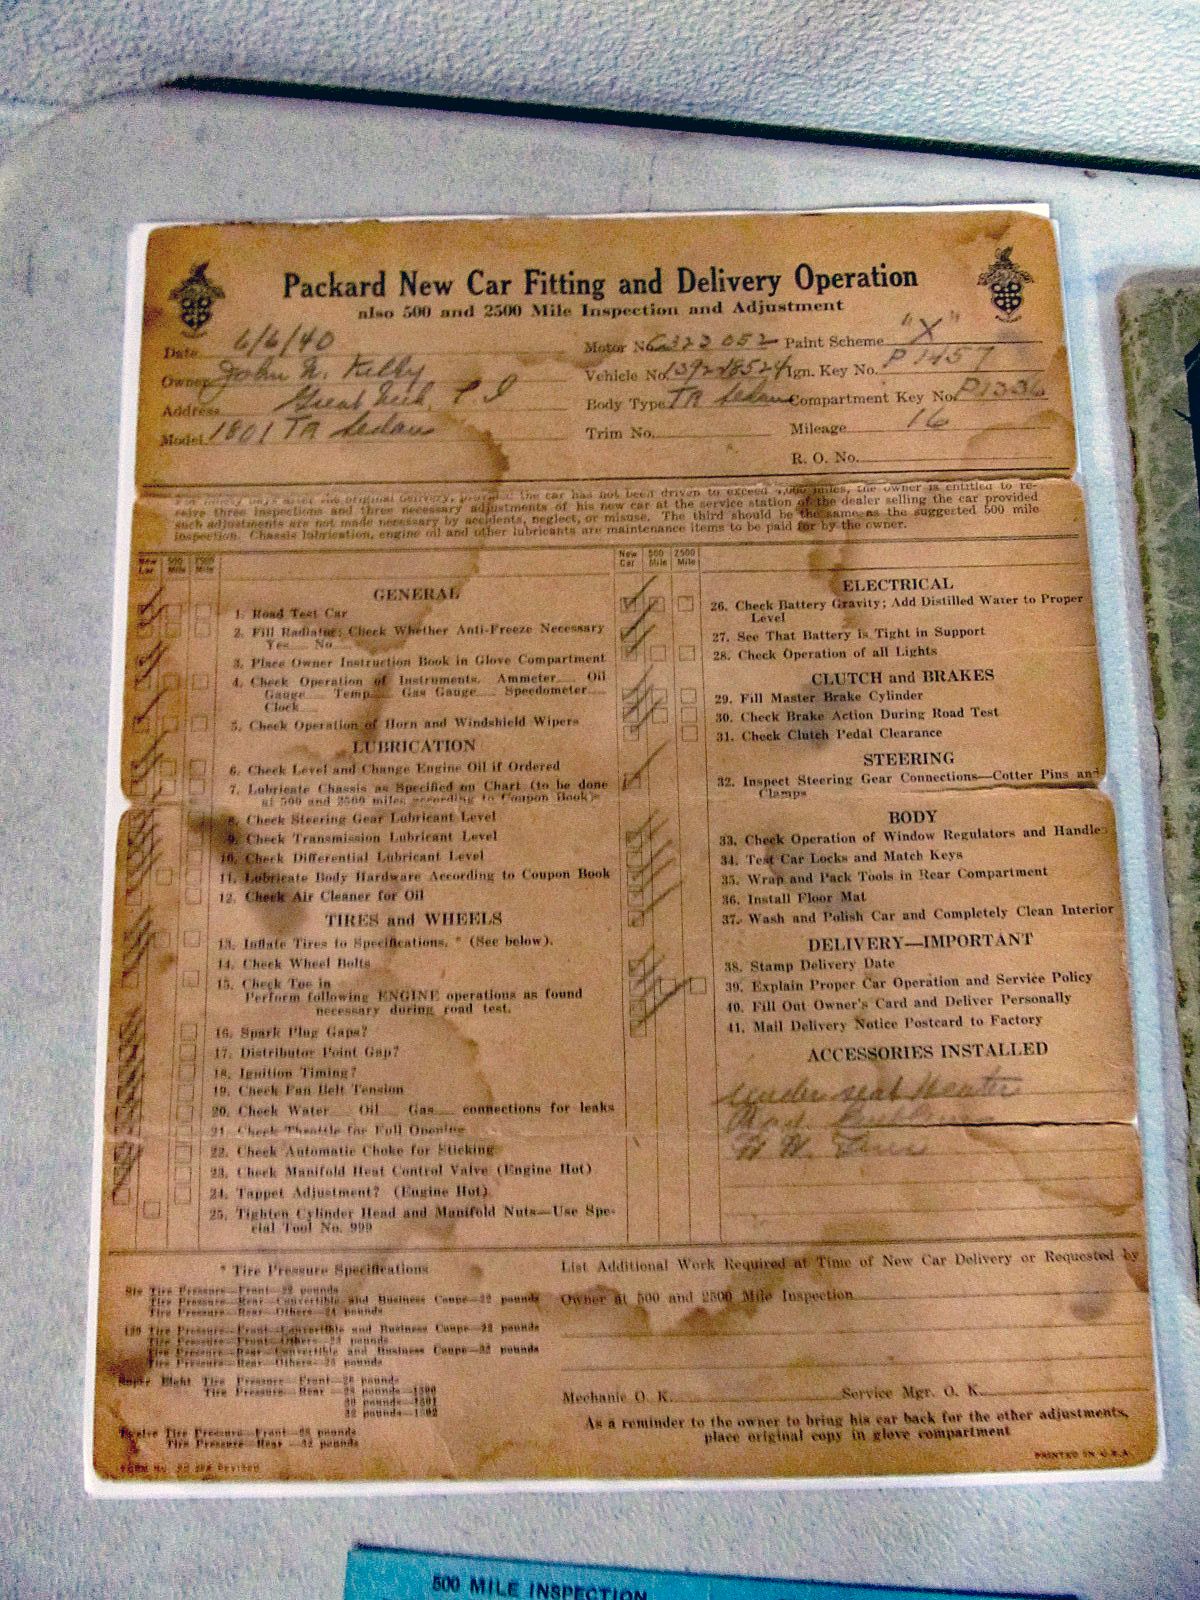 Packard New Car Fitting and Delivery Operation
also 500 and 2500 Mile Inspection and Adjustment
Date 6/6/40
Owner John N. Kelby
Address Great Neck L I
Model 1801 TR Sedan
Motor No. C322 052
Vehicle No.
Body Type TR Sedan
Trim No.
Paint Scheme "X"
Ign. Key No. P1457
Compartment Key No. P1336
Mileage 16
R. O. No.
days after the original delivery, provided the car has not been driven to exceed 4,000 miles, the owner is entitled to re-
ceive three inspections and three necessary adjustments of his new car at the service station of the dealer selling the car provided
such adjustments are not made necessary by accidents, neglect, or misuse. The third should be the same as the suggested 500 mile
inspection. Chassis lubrication, engine oil and other lubricants are maintenance items to be paid for by the owner.
New Car 500 Mile 2500 Mile
GENERAL
1. Road Test Car
2. Fill Radiator; Check Whether Anti-Freeze Necessary
Yes No
3. Place Owner Instruction Book in Glove Compartment
4. Check Operation of Instruments. Ammeter Oil
Gauge Temp. Gas Gauge Speedometer
Clock
5. Check Operation of Horn and Windshield Wipers
LUBRICATION
6. Check Level and Change Engine Oil if Ordered
7. Lubricate Chassis as Specified on Chart (to be done
at 500 and 2500 miles according to Coupon Book)
8. Check Steering Gear Lubricant Level
9. Check Transmission Lubricant Level
10. Check Differential Lubricant Level
11. Lubricate Body Hardware According to Coupon Book
12. Check Air Cleaner for Oil
TIRES and WHEELS
13. Inflate Tires to Specifications. * (See below).
14. Check Wheel Bolts
15. Check Toe in
Perform following ENGINE operations as found
necessary during road test.
16. Spark Plug Gaps?
17. Distributor Point Gap?
18. Ignition Timing?
19. Check Fan Belt Tension
20. Check Water Oil Gas connections for leaks
21. Check Throttle for Full Opening
22. Check Automatic Choke for Sticking
23. Check Manifold Heat Control Valve (Engine Hot)
24. Tappet Adjustment? (Engine Hot)
25. Tighten Cylinder Head and Manifold Nuts—Use Spe-
cial Tool No. 999
New Car 500 Mile 2500 Mile
ELECTRICAL
26. Check Battery Gravity; Add Distilled Water to Proper
Level
27. See That Battery is Tight in Support
28. Check Operation of all Lights
CLUTCH and BRAKES
29. Fill Master Brake Cylinder
30. Check Brake Action During Road Test
31. Check Clutch Pedal Clearance
STEERING
32. Inspect Steering Gear Connections—Cotter Pins and
Clamps
BODY
33. Check Operation of Window Regulators and Handles
34. Test Car Locks and Match Keys
35. Wrap and Pack Tools in Rear Compartment
36. Install Floor Mat
37. Wash and Polish Car and Completely Clean Interior
DELIVERY—IMPORTANT
38. Stamp Delivery Date
39. Explain Proper Car Operation and Service Policy
40. Fill Out Owner's Card and Deliver Personally
41. Mail Delivery Notice Postcard to Factory
ACCESSORIES INSTALLED
under seat Heater
* Tire Pressure Specifications
Tire Pressure—Front—22 pounds
Tire Pressure—Rear—Convertible and Business Coupe—22 pounds
Tire Pressure—Rear—Others—24 pounds
120 Tire Pressure—Front—Convertible and Business Coupe—22 pounds
Tire Pressure—Front—Others—22 pounds
Tire Pressure—Rear—Convertible and Business Coupe—22 pounds
Tire Pressure—Rear—Others—25 pounds
Super Eight Tire Pressure—Front—28 pounds
Tire Pressure—Rear—28 pounds—1500
30 pounds—1501
32 pounds—1502
Twelve Tire Pressure—Front—28 pounds
Tire Pressure—Rear—32 pounds
List Additional Work Required at Time of New Car Delivery or Requested by
Owner at 500 and 2500 Mile Inspection
Mechanic O. K. Service Mgr. O. K.
As a reminder to the owner to bring his car back for the other adjustments,
place original copy in glove compartment
PRINTED IN U.S.A.
500 MILE INSPECTION